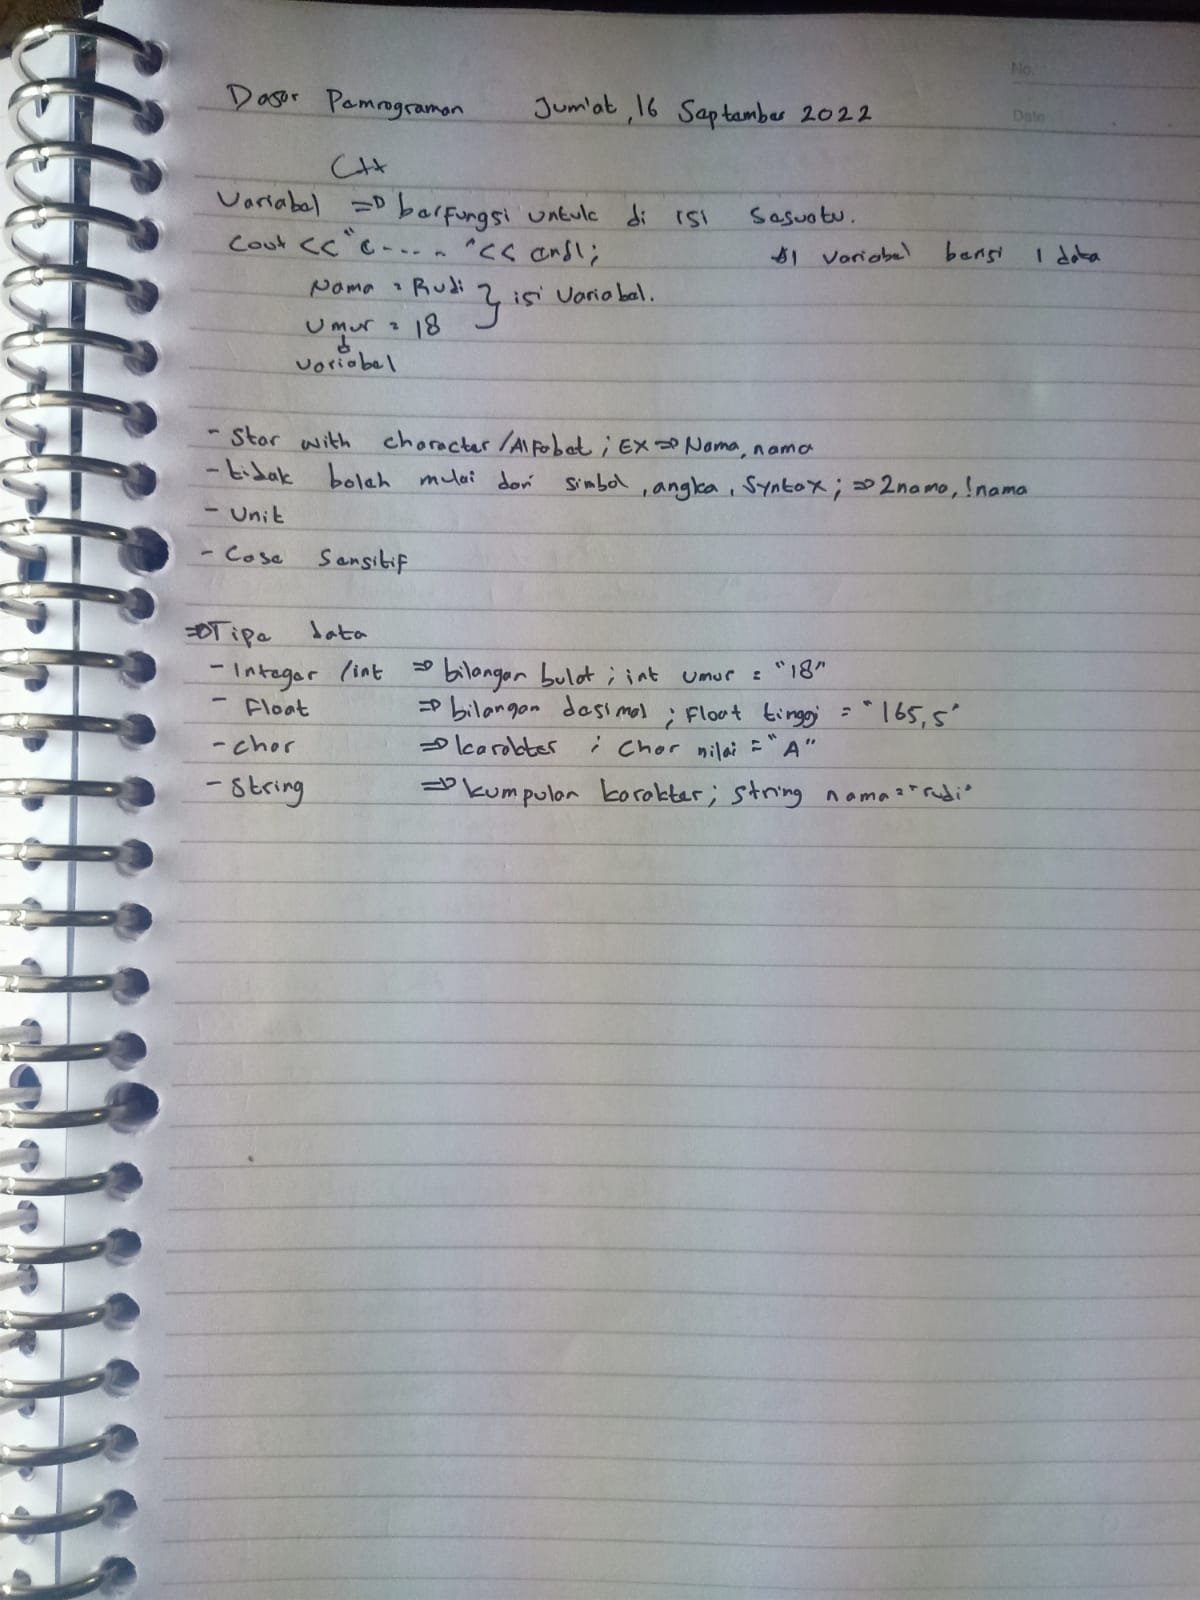 No.
Date
Dasar Pemrograman Jum'at, 16 September 2022
C++
Variabel => berfungsi untuk di isi sesuatu.
Cout << "c---- " << endl; *1 variabel berisi 1 data
Nama = Rudi } isi variabel.
Umur = 18
variabel
- Star with character/Alfabet ; EX => Nama, nama
- tidak boleh mulai dari simbol, angka, Syntax ; => 2nama, !nama
- Unit
- Case Sensitif
=> Tipe data
- Integer /int => bilangan bulat ; int umur = "18"
- Float => bilangan desimal ; Float tinggi = "165,5"
- char => karakter ; Char nilai = "A"
- String => kumpulan karakter; string nama = "rudi"